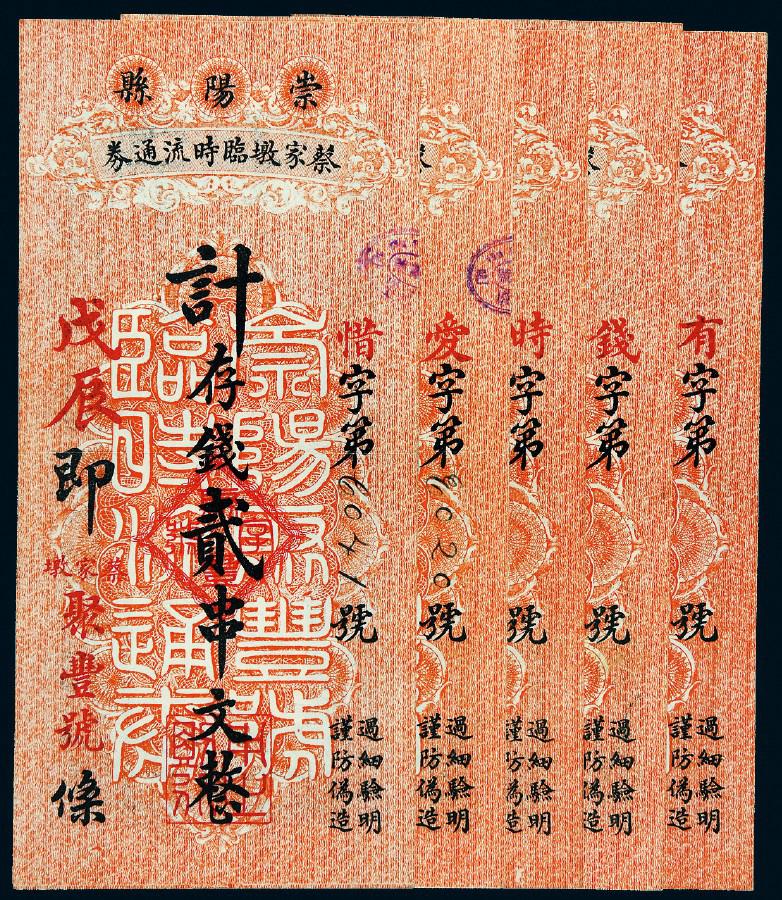 崇陽縣
蔡家墩臨時流通券
有字第號
過細驗明
謹防偽造
錢字第號
過細驗明
謹防偽造
時字第號
過細驗明
謹防偽造
愛字第號
過細驗明
謹防偽造
惜字第號
過細驗明
謹防偽造
計存錢貳串文整
戊辰即
蔡家墩
聚豐號條
崇陽聚豐號
臨時流通券